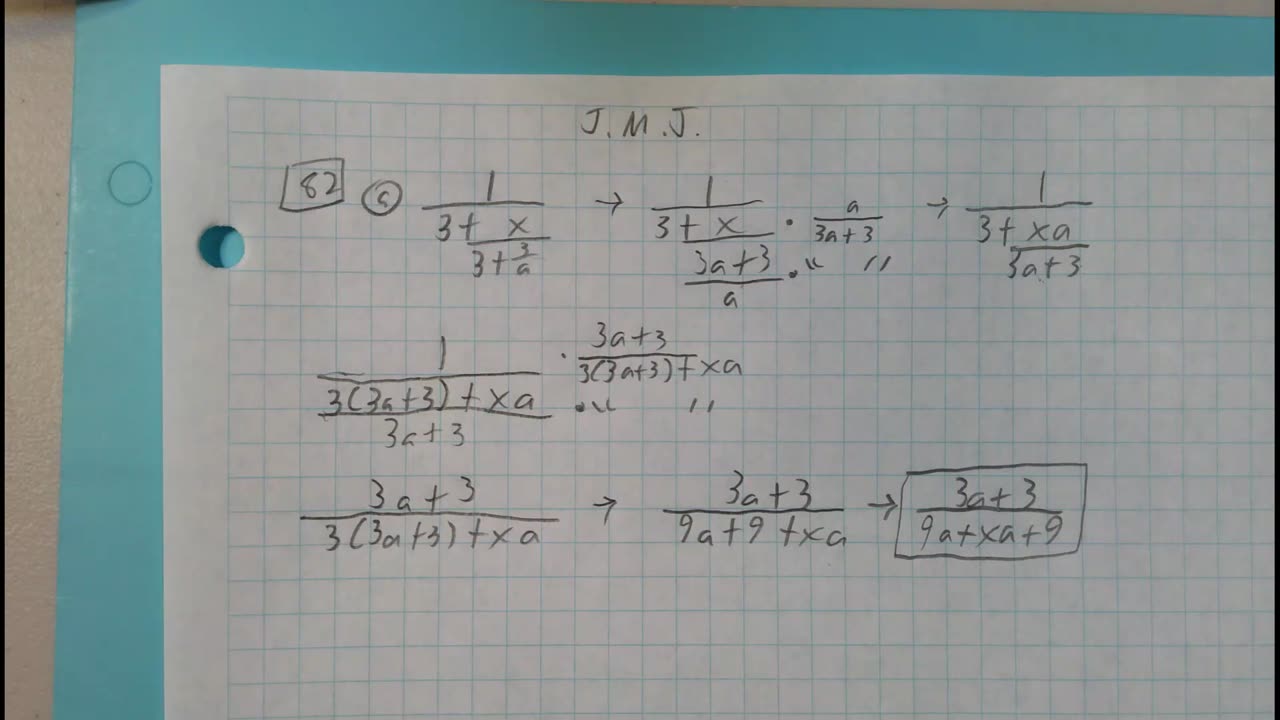 J.M.J.
82 c 1/(3 + x/(3 + 3/a)) → 1/(3 + x/((3a+3)/a)) · a/(3a+3) · " " → 1/(3 + xa/(3a+3))
1/((3(3a+3) + xa)/(3a+3)) · (3a+3)/(3(3a+3) + xa) · " "
(3a+3)/(3(3a+3) + xa) → (3a+3)/(9a+9+xa) → (3a+3)/(9a+xa+9)